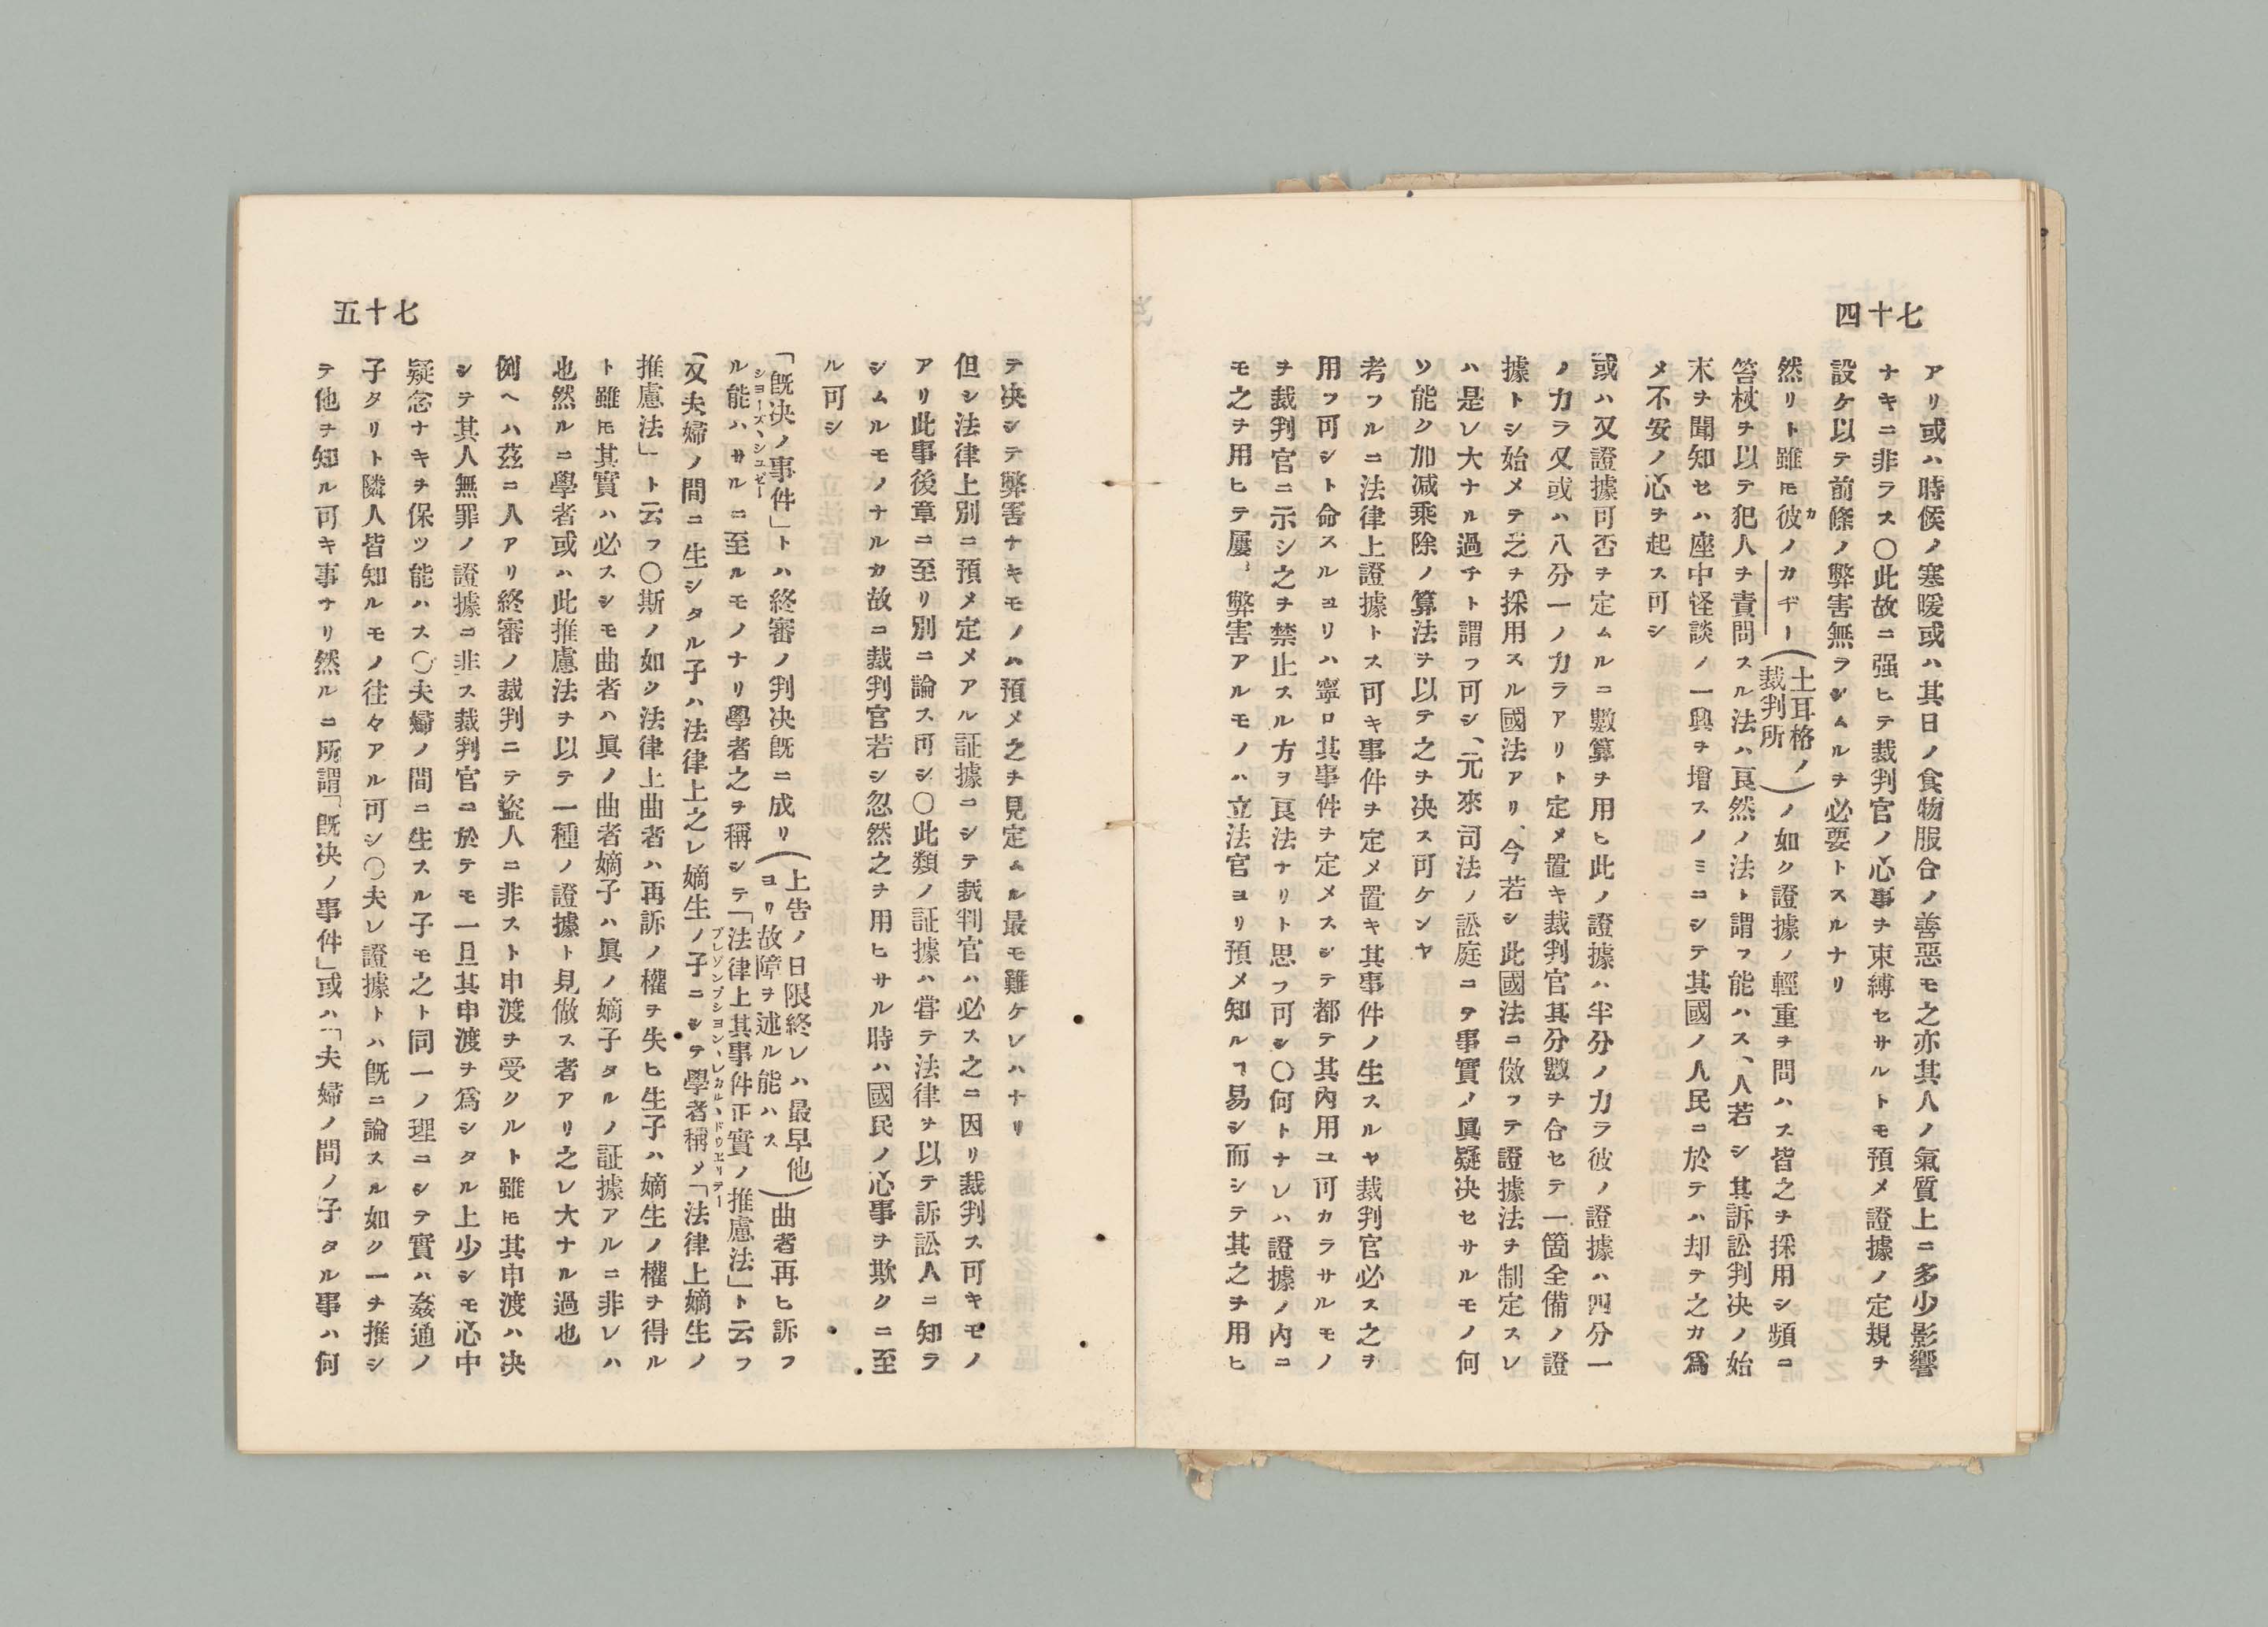 七十四
アリ或ハ時候ノ寒暖或ハ其日ノ食物服合ノ善惡モ之亦其人ノ氣質上ニ多少影響
ナキニ非ラス〇此故ニ强ヒテ裁判官ノ心事ヲ束縛セサルトモ預メ證據ノ定規ヲ
設ケ以テ前條ノ弊害無ラシムルヲ必要トスルナリ
然リト雖𪜈彼ノカヂー(土耳格ノ裁判所)ノ如ク證據ノ輕重ヲ問ハス皆之ヲ採用シ頻ニ
笞杖ヲ以テ犯人ヲ責問スル法ハ良然ノ法ト謂フ能ハス、人若シ其訴訟判决ノ始
末ヲ聞知セハ座中怪談ノ一興ヲ增スノミニシテ其國ノ人民ニ於テハ却テ之カ爲
メ不安ノ心ヲ起ス可シ
或ハ又證據可否ヲ定ムルニ數算ヲ用ヒ此ノ證據ハ半分ノ力ラ彼ノ證據ハ四分一
ノ力ラ又或ハ八分一ノ力ラアリト定メ置キ裁判官其分數ヲ合セテ一箇全備ノ證
據トシ始メテ之ヲ採用スル國法アリ、今若シ此國法ニ傚フテ證據法ヲ制定スレ
ハ是レ大ナル過チト謂フ可シ、元來司法ノ訟庭ニテ事實ノ眞疑决セサルモノ何
ソ能ク加减乗除ノ算法ヲ以テ之ヲ决ス可ケンヤ
考フルニ法律上證據トス可キ事件ヲ定メ置キ其事件ノ生スルヤ裁判官必ス之ヲ
用フ可シト命スルヨリハ寧ロ其事件ヲ定メスシテ都テ其內用ユ可カラサルモノ
ヲ裁判官ニ示シ之ヲ禁止スル方ヲ良法ナリト思フ可シ〇何トナレハ證據ノ內ニ
モ之ヲ用ヒテ屢〻弊害アルモノハ立法官ヨリ預メ知ルヿ易シ而シテ其之ヲ用ヒ
七十五
テ决シテ弊害ナキモノハ預メ之ヲ見定ムル最モ難ケレハナリ
但シ法律上別ニ預メ定メアル証據ニシテ裁判官ハ必ス之ニ因リ裁判ス可キモノ
アリ此事後章ニ至リ別ニ論ス可シ〇此類ノ証據ハ嘗テ法律ヲ以テ訴訟人ニ知ラ
シムルモノナルカ故ニ裁判官若シ忽然之ヲ用ヒサル時ハ國民ノ心事ヲ欺クニ至
ル可シ
「旣决ノ事件」トハ終審ノ判决旣ニ成リ(上告ノ日限終レハ最早他ヨリ故障ヲ述ル能ハス)曲者再ヒ訴フ
ル能ハサルニ至ルモノナリ學者之ヲ稱シテ「法律上其事件正實ノ推慮法」ト云フ
(又夫婦ノ間ニ生シタル子ハ法律上之レ嫡生ノ子ニシテ學者稱メ「法律上嫡生ノ
推慮法」ト云フ〇斯ノ如ク法律上曲者ハ再訴ノ權ヲ失ヒ生子ハ嫡生ノ權ヲ得ル
ト雖𪜈其實ハ必スシモ曲者ハ眞ノ曲者嫡子ハ眞ノ嫡子タルノ証據アルニ非レハ
也然ルニ學者或ハ此推慮法ヲ以テ一種ノ證據ト見做ス者アリ之レ大ナル過也
例ヘハ茲ニ人アリ終審ノ裁判ニテ盜人ニ非スト申渡ヲ受クルト雖𪜈其申渡ハ决
シテ其人無罪ノ證據ニ非ス裁判官ニ於テモ一旦其申渡ヲ爲シタル上少シモ心中
疑念ナキヲ保ツ能ハス〇夫婦ノ間ニ生スル子モ之ト同一ノ理ニシテ實ハ姦通ノ
子タリト隣人皆知ルモノ往々アル可シ〇夫レ證據トハ旣ニ論スル如ク一ヲ推シ
テ他ヲ知ル可キ事ナリ然ルニ所謂「旣决ノ事件」或ハ「夫婦ノ間ノ子タル事ハ何